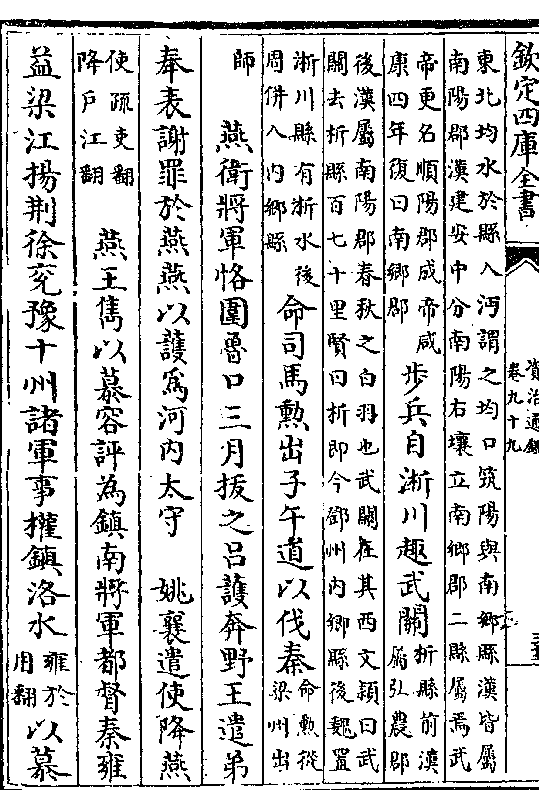 欽定四庫全書
資治通鑑
卷九十九
東北均水於縣入沔謂之均口筑陽與南鄉縣漢皆屬
南陽郡漢建安中分南陽右壤立南鄉郡二縣屬焉武
帝更名順陽郡成帝咸
康四年復曰南鄉郡
步兵自淅川趣武關
析縣前漢
屬弘農郡
後漢屬南陽郡春秋之白羽也武關在其西文頴曰武
關去析縣百七十里賢曰析即今鄧州内鄉縣後魏置
淅川縣有淅水後
周併入内鄉縣
命司馬勲出子午道以伐秦
命勲從
梁州出
師
燕衛將軍恪圍魯口三月拔之吕護奔野王遣弟
奉表謝罪於燕燕以護為河内太守　姚襄遣使降燕
使疏吏翻
降户江翻
燕王雋以慕容評為鎮南將軍都督秦雍
益梁江揚荆徐兖豫十州諸軍事權鎮洛水
雍於
用翻
以慕